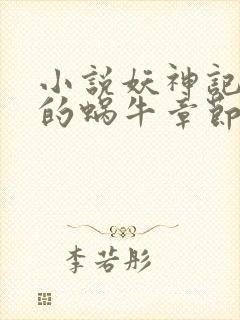 小說妖神記
的蝸牛章節
李若彤